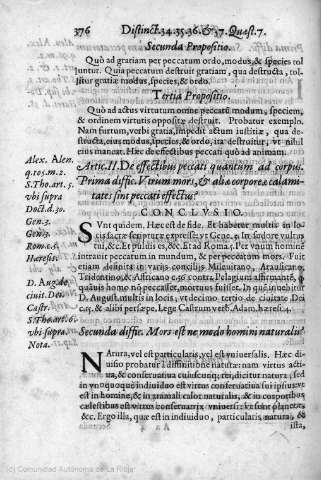 376 Distinct. 34. 35. 36. & 37. Quæst. 7.
Secunda Propositio.
Quò ad gratiam per peccatum ordo, modus, & species tol
luntur. Quia peccatum destruit gratiam, qua destructa, tol-
litur gratiæ modus, species, & ordo.
Tertia Propositio.
Quò ad actus virtutum omne peccatū modum, speciem,
& ordinem virtutis oppositæ destruit. Probatur exemplo.
Nam furtum, verbi gratia, impedit actum iustitiæ, qua de-
structa, eius modus, species, & ordo, ita destruitur, vt nihil
eius maneat. Hæc de effectibus peccati quò ad animam.
Alex. Alen.
q. 105. m. 2.
S. Tho. art. 5.
vbi supra
Doct. d. 30.
Gen. 3.
Gen. 3.
Rom. c. 5.
Hæresis.
D. Aug. do
cuit. Dei.
Castr.
S. Tho. ar. 6.
vbi supra.
Nota.
Artic. II. De effectibus peccati quantum ad corpus.
Prima diffic. Vtrum mors, & alia corporeæ calami-
tates sint peccati effectus?
CONCLVSIO.
SVnt quidem. Hæc est de fide. Et habetur multis in lo-
cis sacræ scripturæ expressè: vt Gene. 3. In sudore vultus
tui, &c. Et puluis es, &c. Et ad Roma. 5. Per vnum hominē
intrauit peccatum in mundum, & per peccatum mors. Fuit
etiam definitū in varijs concilijs Mileuitano, Arausicano,
Tridentino, & Africano c. 76. contra Pelagium affirmantē,
quauis homo nō peccasset, mortuus fuisset. In quē inuehitur
D. August. multis in locis, vt decimo tertio de ciuitate Dei
c. 15. & alibi persæpe. Lege Castrum verb. Adam, hæresi. 4.
Secunda diffic. Mors est ne modo homini naturalis?
NAtura, vel est particularis, vel est vniuersalis. Hæc di-
uisio probatur diffinitione naturæ: nam virtus acti-
ua, & conseruatiua cuiuscunq; rei, dicitur natura, sed
in vnoquoque indiuiduo est virtus conseruatiua sui ipsius: vt
est in homine, & in animali calor naturalis, & in corporibus
cælestibus est virtus conseruatrix vniuersi: vt sunt planetæ,
&c. Ergo illa, quæ est in indiuiduo, particularis, natura, &
ista,
(c) Comunidad Autónoma de La Rioja